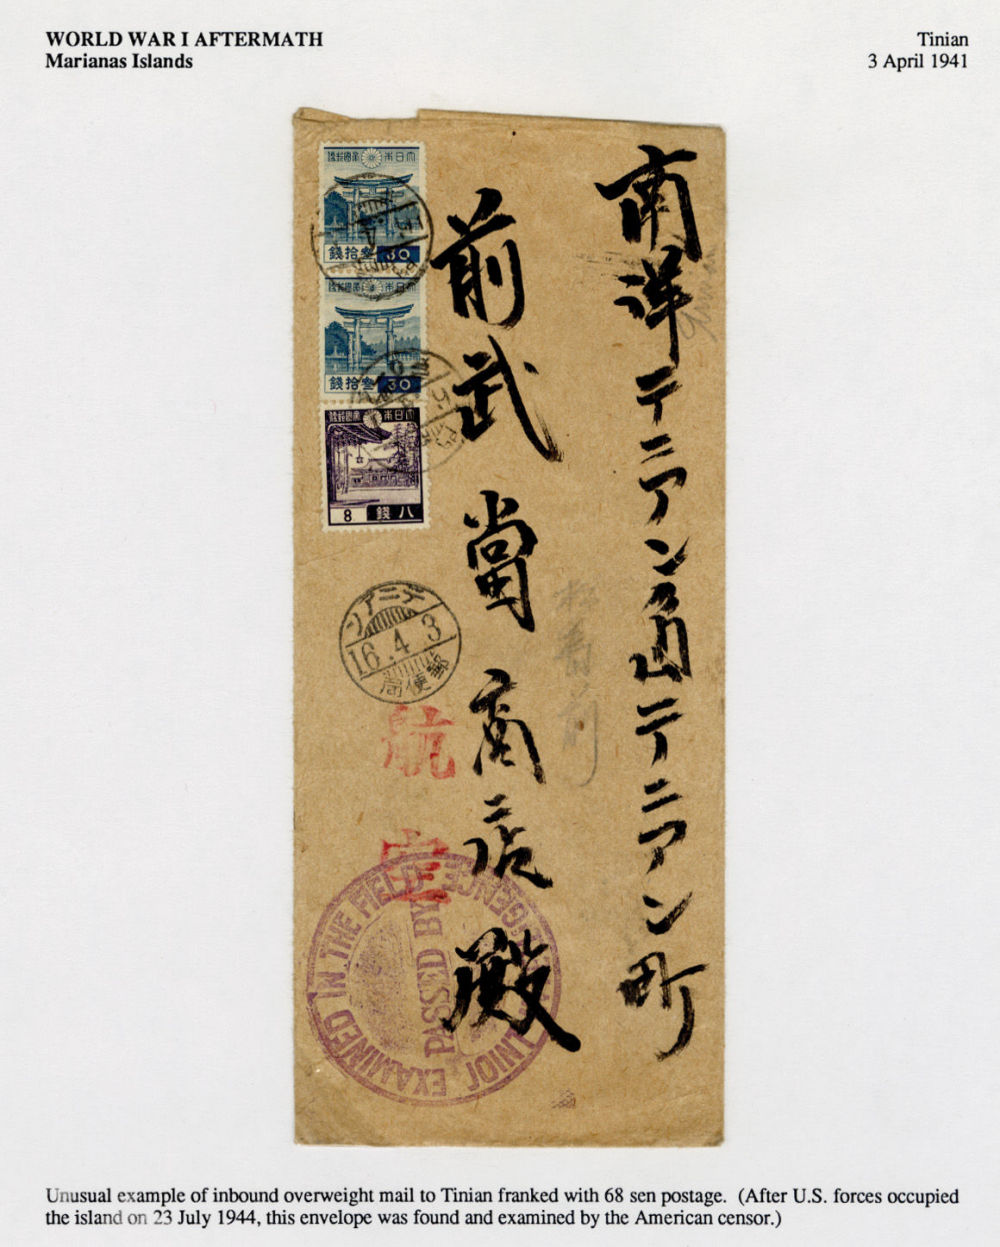 WORLD WAR I AFTERMATH
Marianas Islands
Tinian
3 April 1941
南洋テニアン島テニアン町
前武當商店殿
大日本帝國郵便
錢拾叁 30
大日本帝國郵便
錢拾叁 30
大日本帝國郵便
8 錢八
テニアン
16.4.3
郵便局
航空
JOINT INTELLIGENCE
EXAMINED IN THE FIELD
PASSED BY
Unusual example of inbound overweight mail to Tinian franked with 68 sen postage. (After U.S. forces occupied
the island on 23 July 1944, this envelope was found and examined by the American censor.)